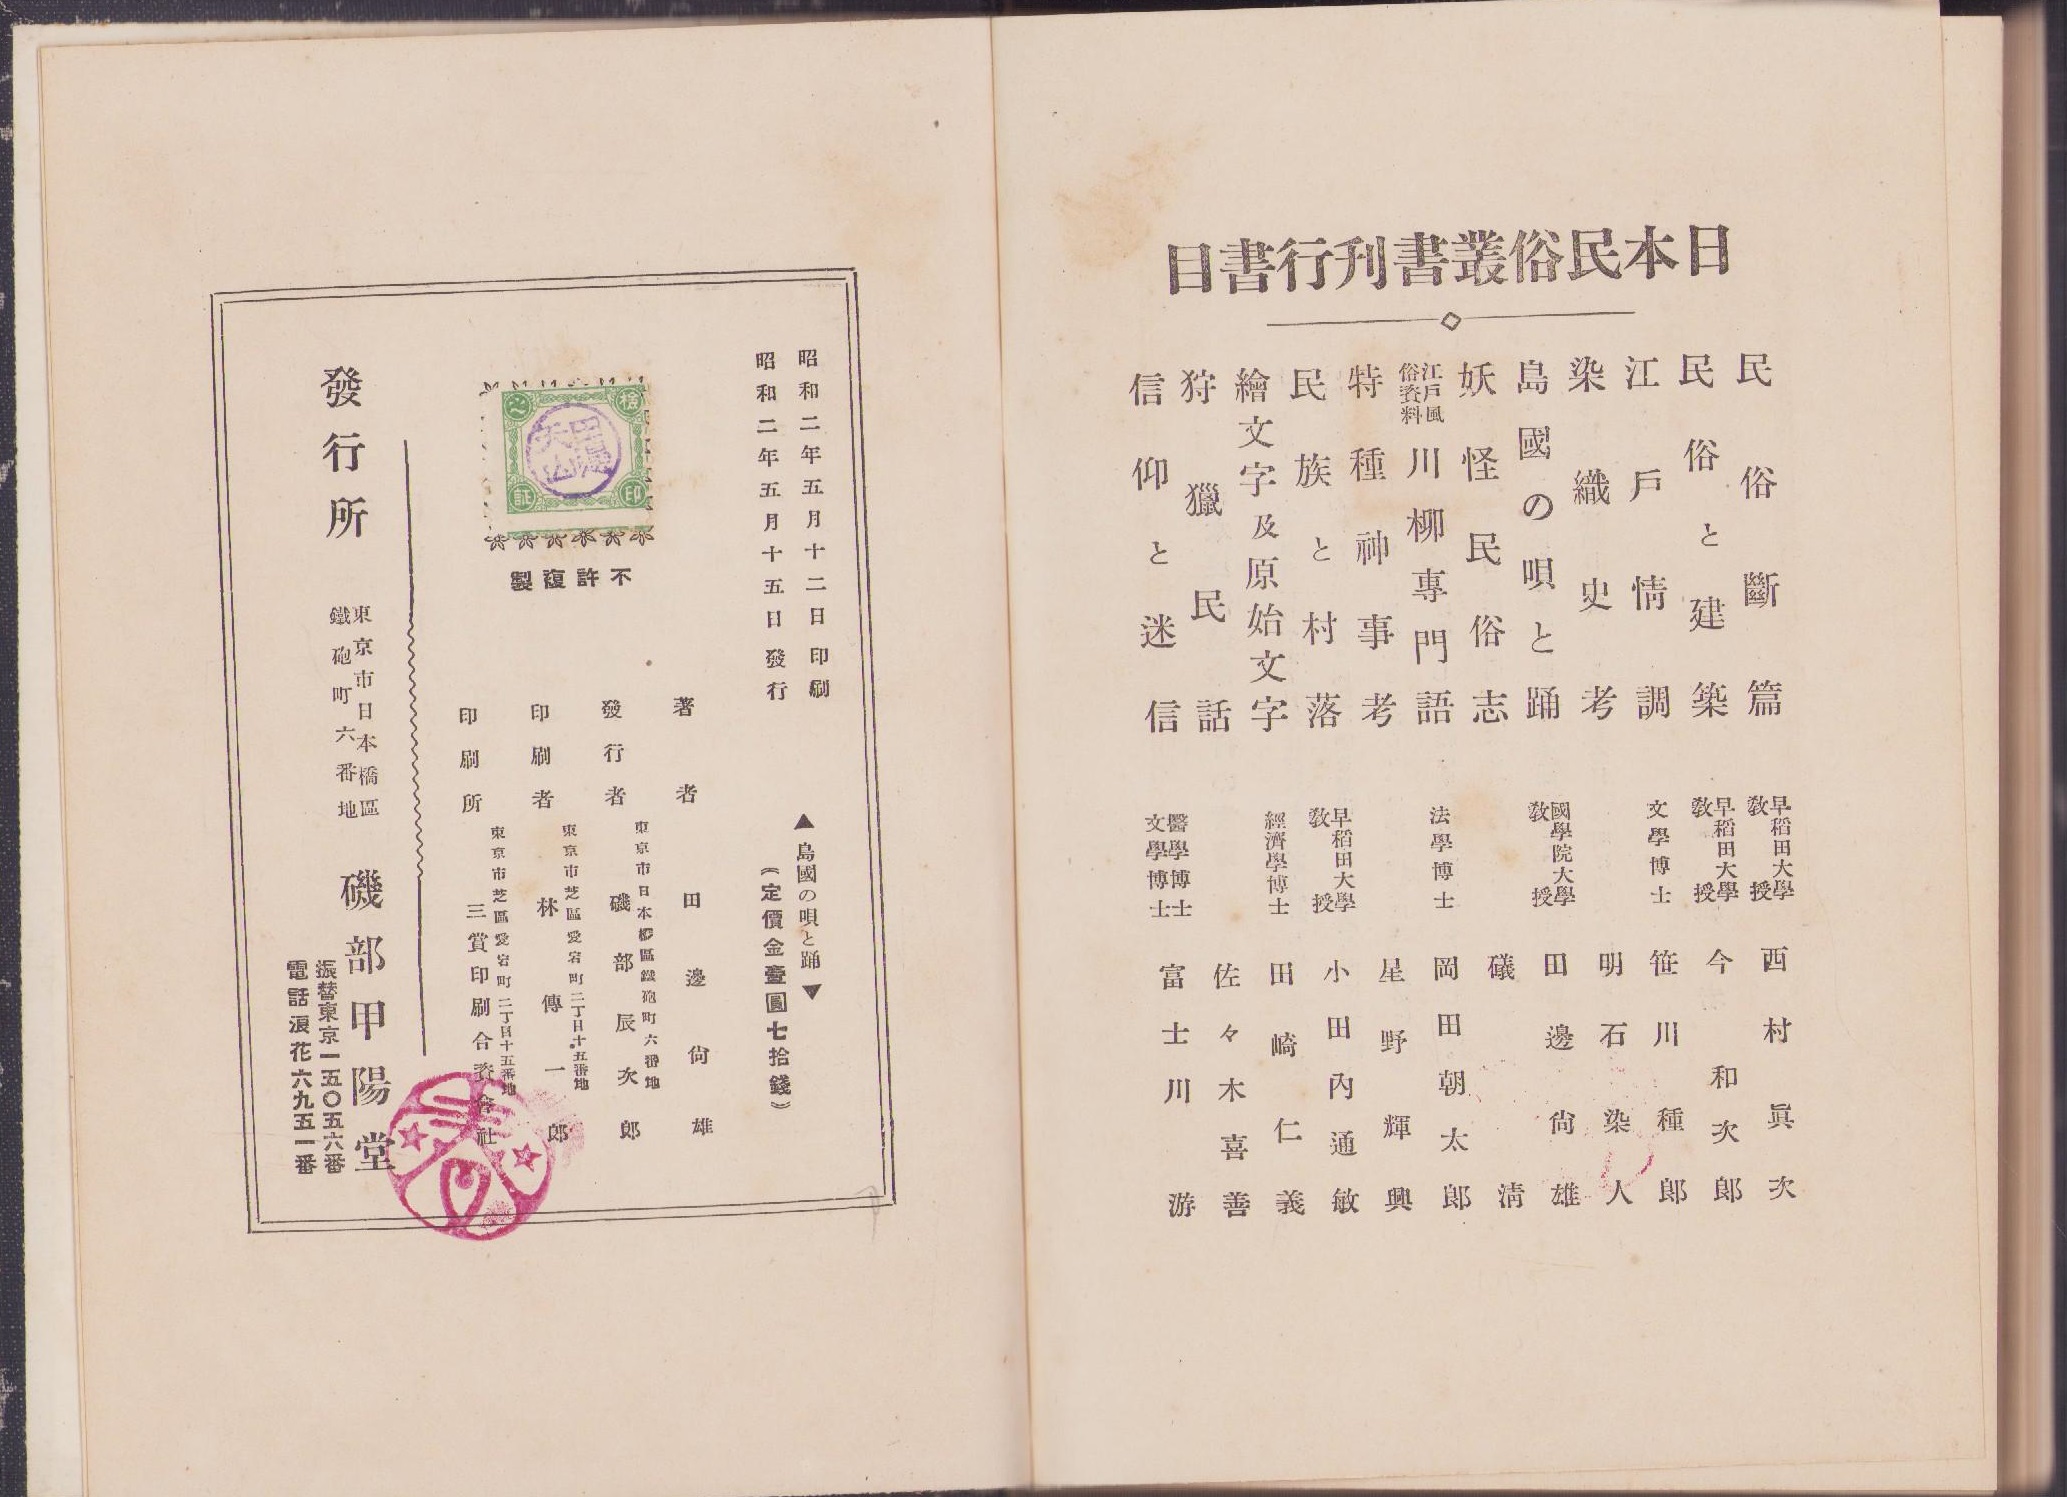 日本民俗叢書刊行書目
民俗斷篇 早稻田大學教授 西村眞次
民俗と建築 早稻田大學教授 今和次郎
江戶情調 文學博士 笹川種郎
染織史考 明石染人
島國の唄と踊 國學院大學教授 田邊尙雄
妖怪民俗志 礒淸
江戶風俗資料 川柳專門語 法學博士 岡田朝太郎
特種神事考 星野輝興
民族と村落 早稻田大學教授 小田內通敏
繪文字及原始文字 經濟學博士 田崎仁義
狩獵民話 佐々木喜善
信仰と迷信 醫學博士文學博士 富士川游
昭和二年五月十二日印刷
昭和二年五月十五日發行
▲島國の唄と踊▼
(定價金壹圓七拾錢)
不許復製
著者 田邊尙雄
東京市日本橋區鐵砲町六番地
發行者 磯部辰次郎
東京市芝區愛宕町二丁目十五番地
印刷者 林傳一郎
東京市芝區愛宕町二丁目十五番地
印刷所 三賞印刷合資會社
發行所 東京市日本橋區鐵砲町六番地 磯部甲陽堂
振替東京一五〇五六番
電話浪花六九五一番